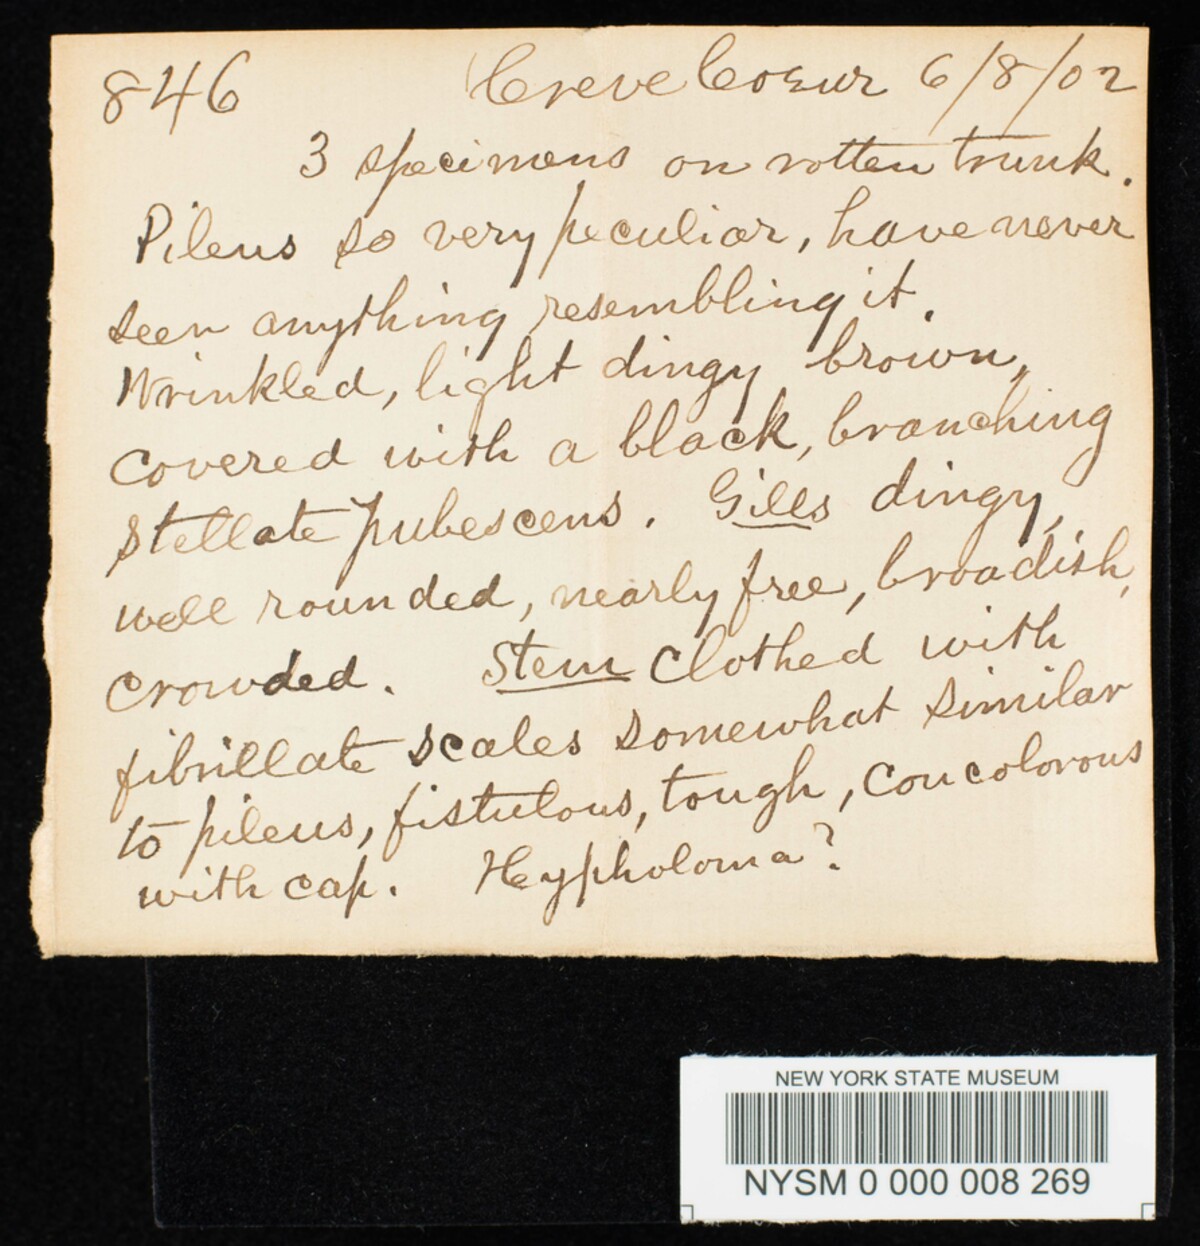 846 Creve Coeur 6/8/02
3 specimens on rotten trunk.
Pileus so very peculiar, have never
seen anything resembling it.
Wrinkled, light dingy brown,
covered with a black, branching
stellate pubescens. Gills dingy,
well rounded, nearly free, broadish,
crowded. Stem clothed with
fibrillate scales somewhat similar
to pileus, fistulous, tough, concolorous
with cap. Hypholoma?
NEW YORK STATE MUSEUM
NYSM 0 000 008 269